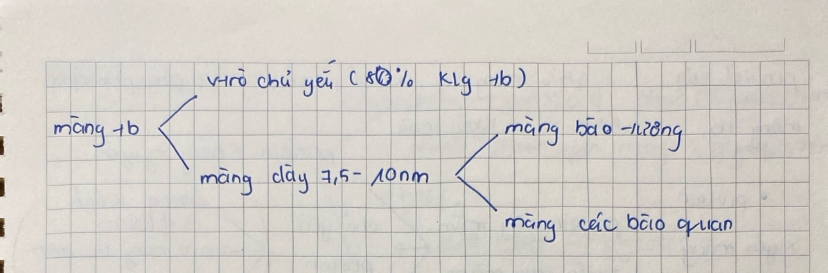 v.trò chủ yếu (80% klg tb)
màng tb
màng bào tương
màng dày 7,5 - 10nm
màng các bào quan